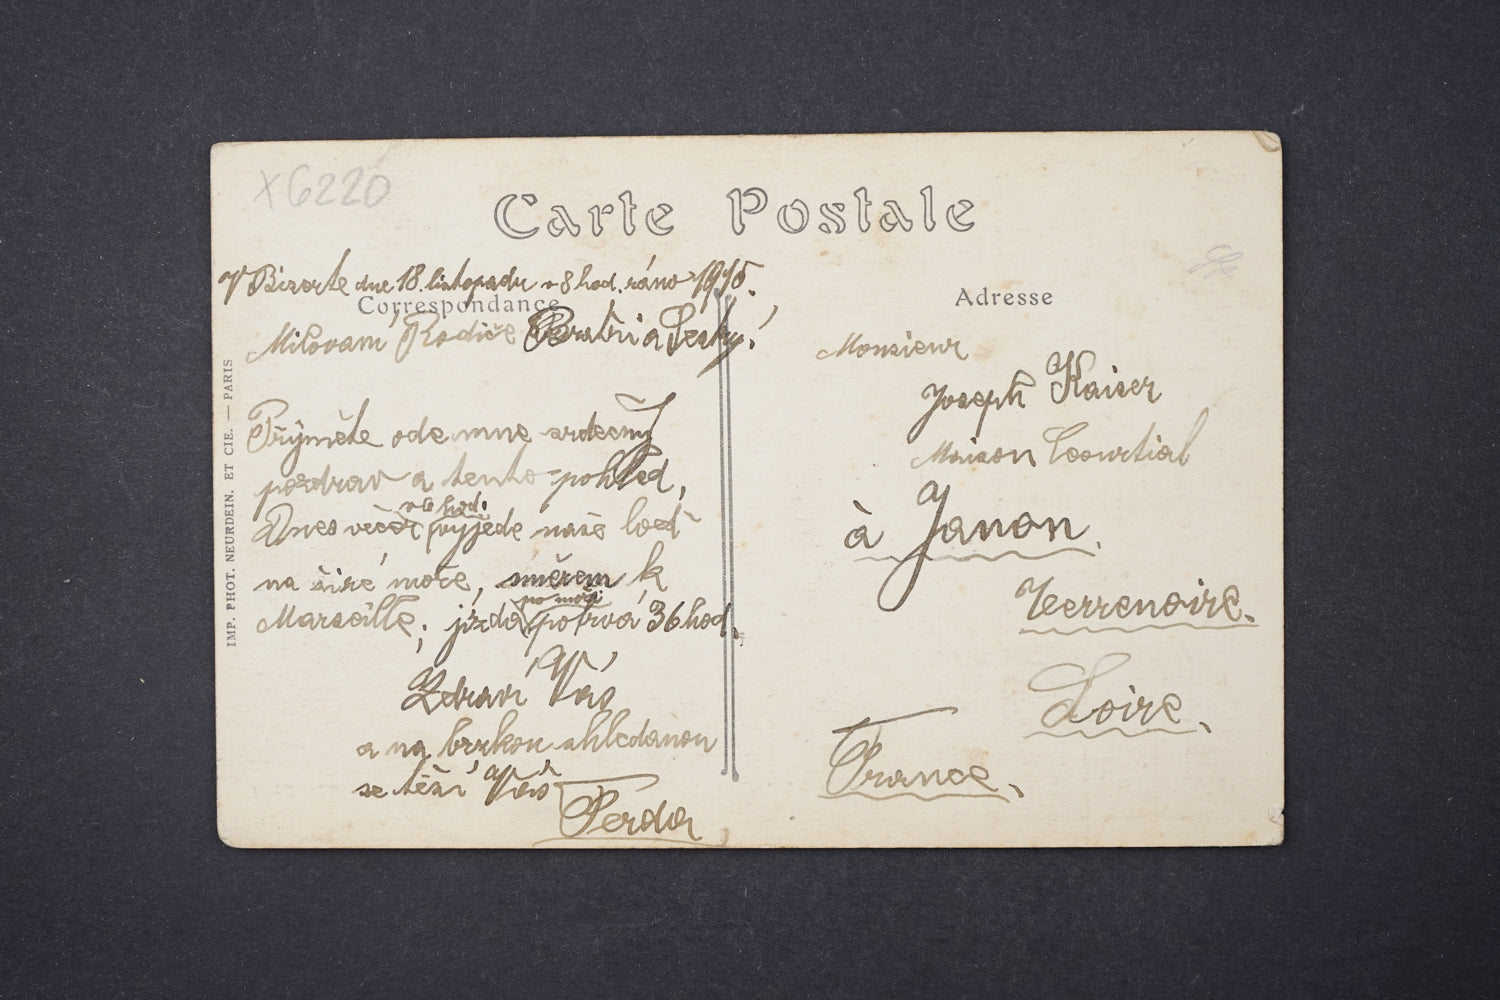 x6220
Carte Postale
V Bizerte dne 18. listopadu v 8 hod. ráno 1915.
Correspondance
Milovaní Rodiče Bratři a Sestry!
Přijměte ode mne srdečný
pozdrav a tento pohled,
v 6 hod.
Dnes večer vyjede naše loď
na širé moře, směrem k
po moři
Marseille, jízda potrvá 36 hod.
Zdraví Vás
a na brzkou shledanou
se těší Váš
Ferda
IMP. PHOT. NEURDEIN. ET CIE. — PARIS
Adresse
Monsieur
Joseph Kaiser
Maison Courtial
à Janon
Terrenoire.
Loire.
France.